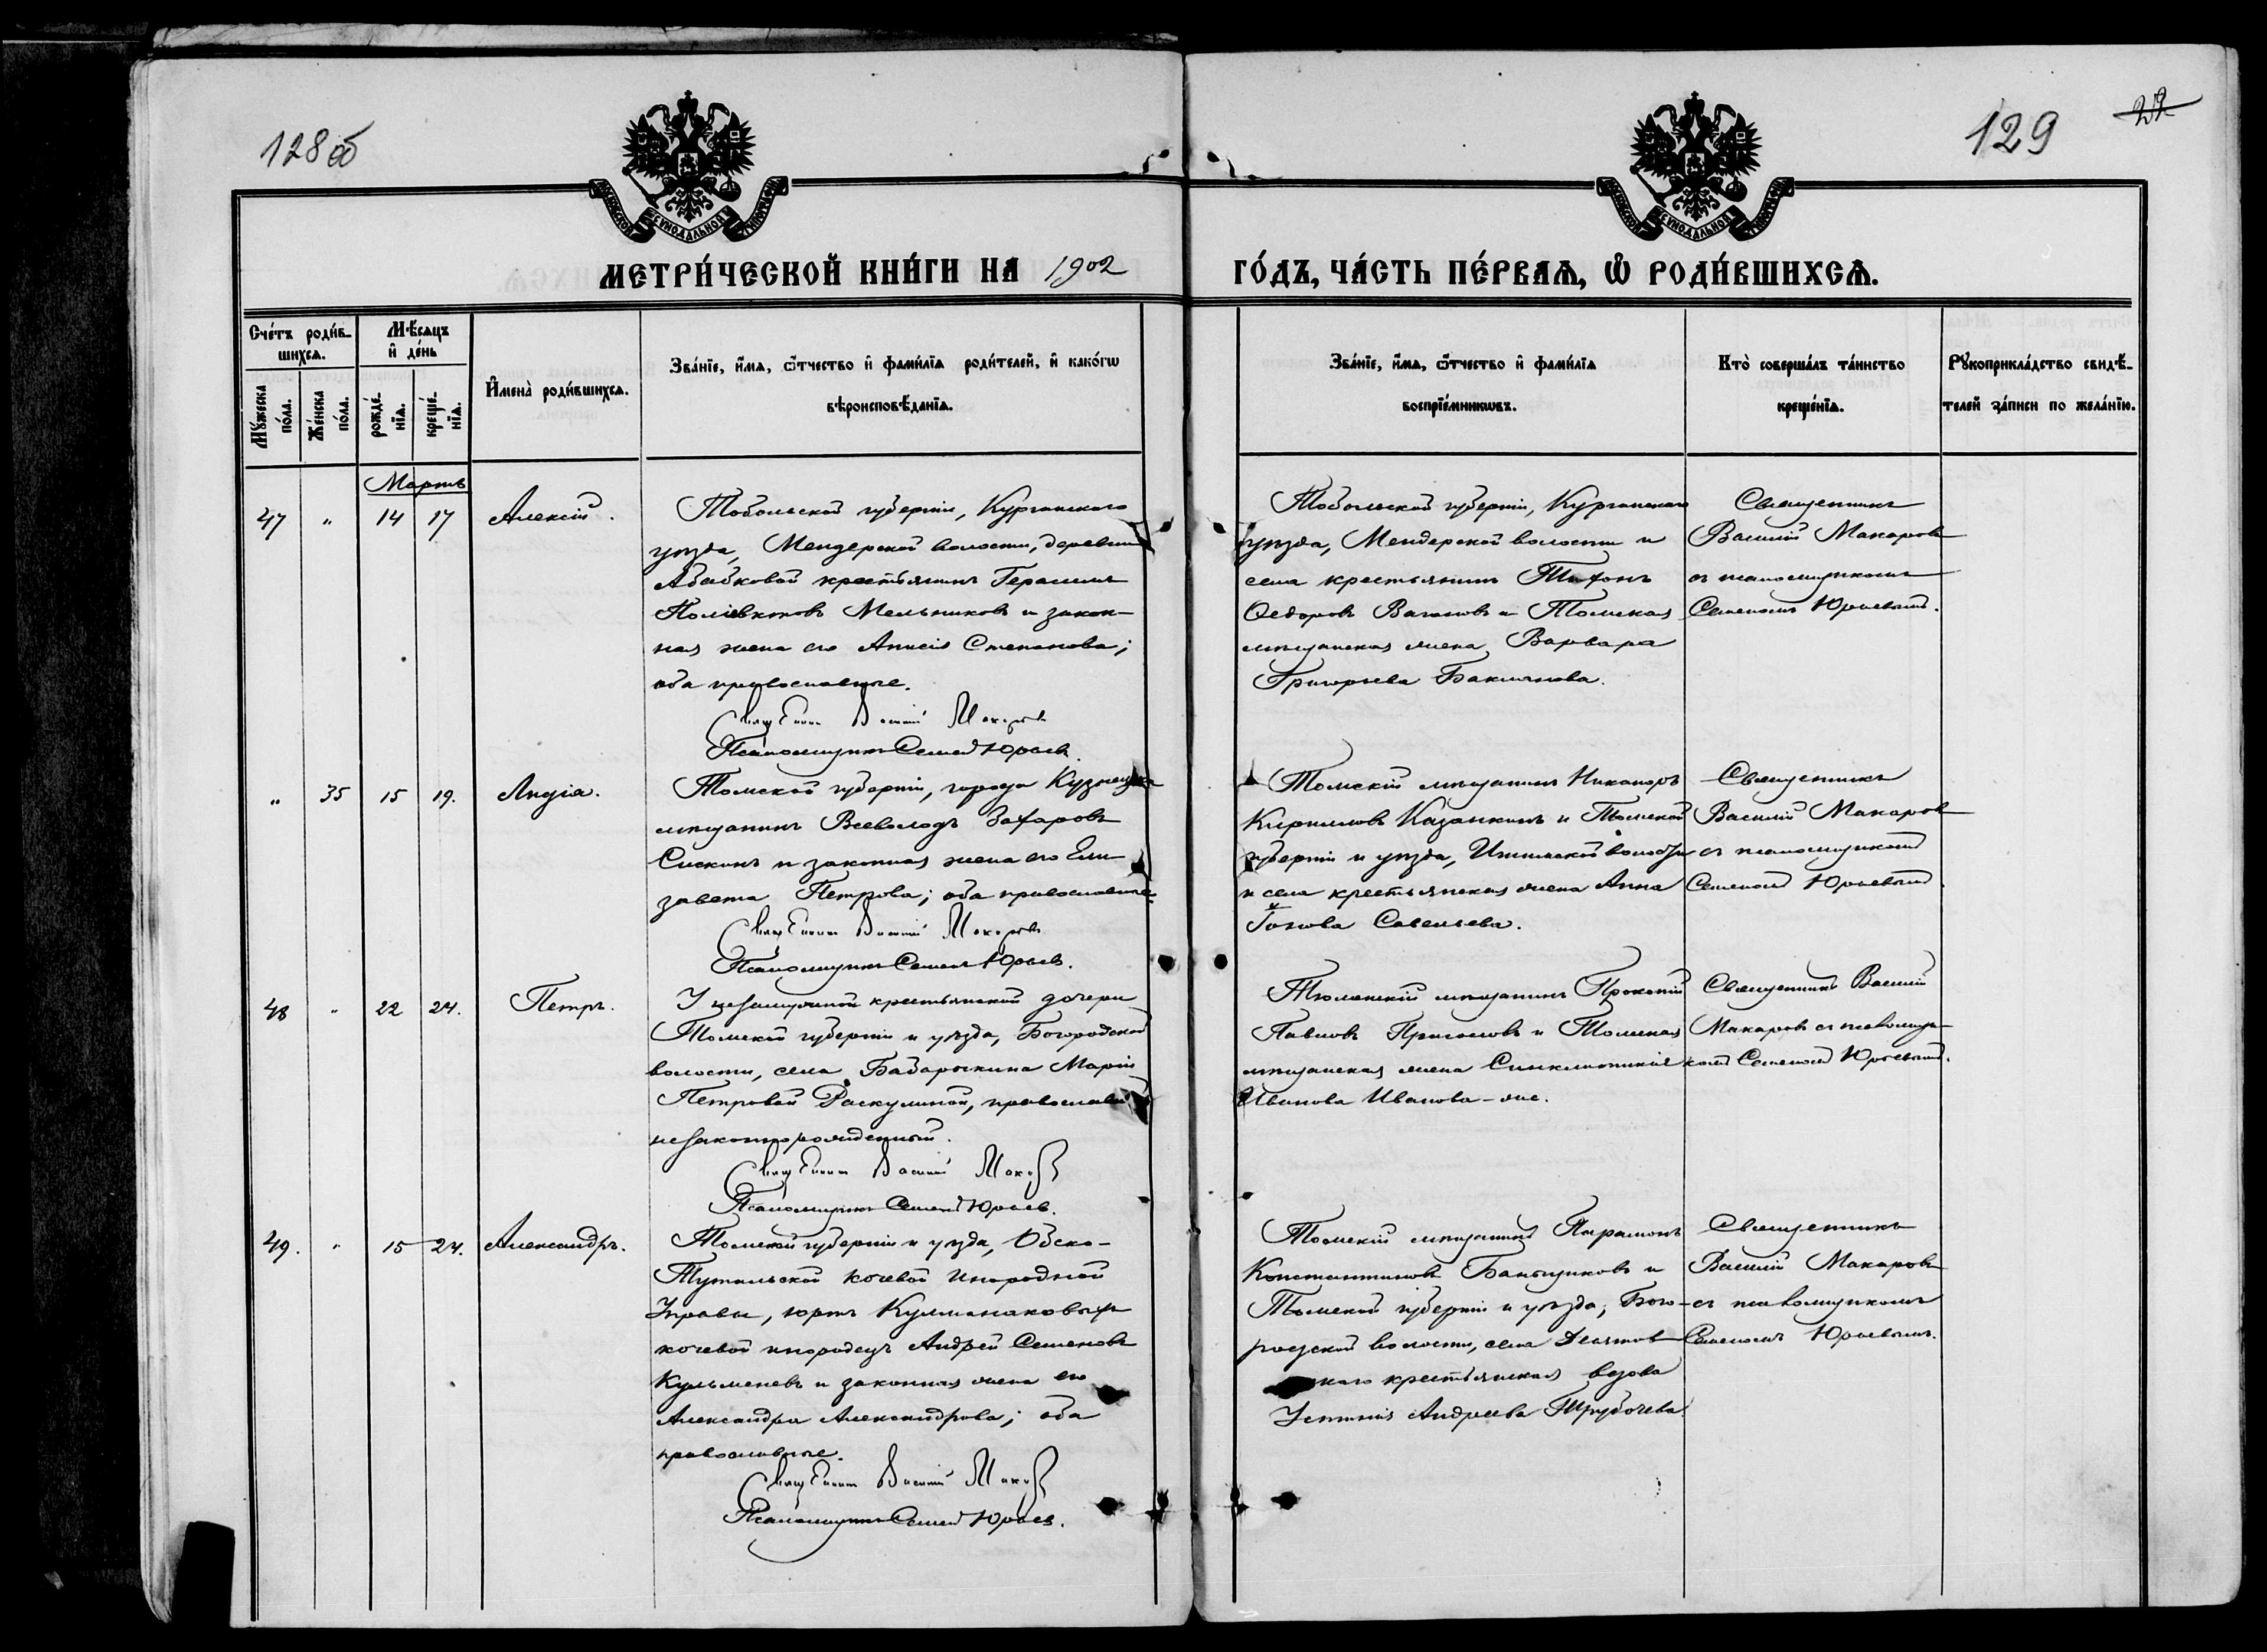 128об
129
МОСКОВСКОЙ СѴНОДАЛЬНОЙ ТИПОГРАФІИ
МОСКОВСКОЙ СѴНОДАЛЬНОЙ ТИПОГРАФІИ
МЕТРИ́ЧЕСКОЙ КНИ́ГИ НА 1902
ГО́ДЪ, ЧА́СТЬ ПЕ́РВАѦ, Ѡ҆ РОДИ́ВШИХСѦ.
Сче́тъ роди́в-
шихсѧ.
Мѣ́сѧцъ
и҆ де́нь
Мꙋ́жеска по́ла.
Же́нска по́ла.
рожде́-нїѧ.
креще́-нїѧ.
И҆мена̀ роди́вшихсѧ.
Зва́нїе, и҆́мѧ, ѻ҆́тчество и҆ фами́лїѧ роди́телей, и҆ како́гѡ
вѣроисповѣ́данїѧ.
Зва́нїе, и҆́мѧ, ѻ҆́тчество и҆ фами́лїѧ
воспрїе́мникѡвъ.
Кто̀ соверша́лъ та́инство
креще́нїѧ.
Рꙋкоприкла́дство свидѣ́-
телей за́писи по жела́нїю.
Мартъ
47 " 14 17 Алексій.
Тобольской губерніи, Курганскаго
уѣзда, Мендерской волости, деревни
крестьянинъ Герасимъ
Поліевктовъ Мельниковъ и закон-
ная жена его Анисія Степанова;
оба православные.
Священникъ Василій Макаровъ
Псаломщикъ Семенъ Юрьевъ.
Тобольской губерніи, Курганскаго
уѣзда, Мендерской волости и
села крестьянинъ Тифонъ
Ѳедоровъ и Томская
мѣщанская жена Варвара
Григорьева
Священникъ
Василій Макаровъ
съ псаломщикомъ
Семеномъ Юрьевымъ.
" 35 15 19. Лидія.
Томской губерніи, города Кузнецка
мѣщанинъ Всеволодъ Захаровъ
и законная жена его Ели-
завета Петрова; оба православные.
Священникъ Василій Макаровъ
Псаломщикъ Семенъ Юрьевъ.
Томскій мѣщанинъ Никаноръ
Кирилловъ Казанкинъ и Томской
губерніи и уѣзда, волости
и села крестьянская жена Анна
Савельева.
Священникъ
Василій Макаровъ
съ псаломщикомъ
Семеномъ Юрьевымъ.
48 " 22 24. Петръ.
У незамужней крестьянской дочери
Томской губерніи и уѣзда, Богородской
волости, села Бабарыкина Маріи
Петровой Раскулиной, православн.
незаконнорожденный.
Священникъ Василій Макаровъ
Псаломщикъ Семенъ Юрьевъ.
Тюменскій мѣщанинъ Прокопій
Павловъ и Томская
мѣщанская жена Синклитикія
Иванова Иванова-же.
Священникъ Василій
Макаровъ съ псаломщи-
комъ Семеномъ Юрьевымъ.
49. " 15 24. Александръ.
Томской губерніи и уѣзда, Обско-
Тутальской кочевой Инородной
Управы, юртъ Кулманаковыхъ
кочевой инородецъ Андрей Семеновъ
Кульменевъ и законная жена его
Александра Александрова; оба
православные.
Священникъ Василій Макаровъ
Псаломщикъ Семенъ Юрьевъ.
Томскій мѣщанинъ Парамонъ
Константиновъ Банщиковъ и
Томской губерніи и уѣзда, Бого-
родской волости, села
крестьянская вдова
Устинія Андреева Трубачева.
Священникъ
Василій Макаровъ
съ псаломщикомъ
Семеномъ Юрьевымъ.